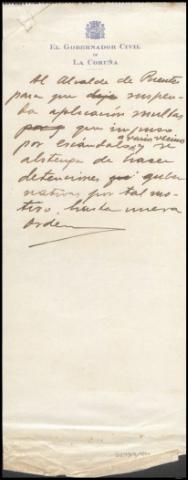 EL GOBERNADOR CIVIL
DE
LA CORUÑA
Al Alcalde de Puente
para que deje suspen-
da aplicación multas
que impuso
a varios vecinos
por escándalos y se
abstenga de hacer
detenciones guber
nativas por tal mo-
tivo, hasta nueva
orden